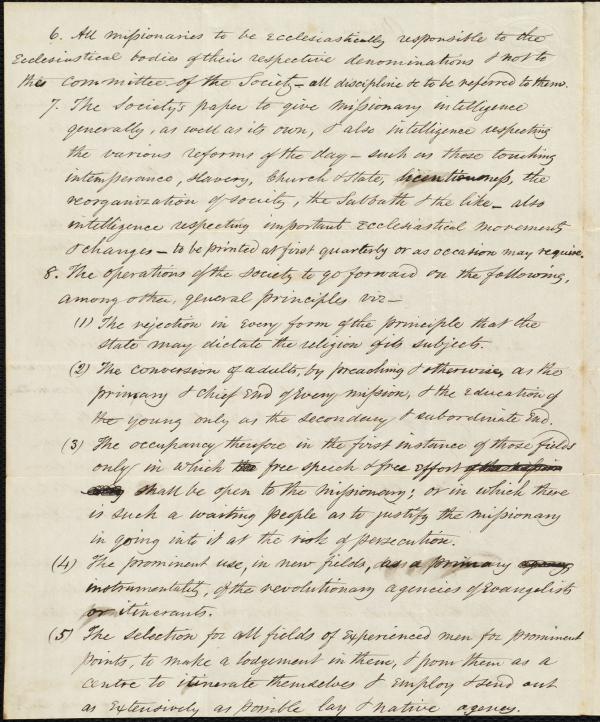 6. All missionaries to be Ecclesiastically responsible to the
Ecclesiastical bodies of their respective denominations & not to
the committee of the Society – all discipline &c to be referred to them.
7. The Society's paper to give missionary intelligence
generally, as well as its own, & also intelligence respecting
the various reforms of the day – such as those touching
intemperance, slavery, Church & State, licentiousness, the
reorganization of society, the Sabbath & the like – also
intelligence respecting important Ecclesiastical movements
& changes – to be printed at first quarterly or as occasion may require.
8. The operations of the Society to go forward on the following,
among other, general principles viz –
(1) The rejection in Every form of the principle that the
state may dictate the religion of its subjects.
(2) The conversion of adults, by preaching & otherwise, as the
primary & chief End of Every mission, & the Education of
the young only as the secondary & subordinate End.
(3) The occupancy therefore in the first instance of those fields
only in which the free speech & free Effort of the
shall be open to the missionary; or in which there
is such a waiting people as to justify the missionary
in going into it at the risk of persecution.
(4) The prominent use, in new fields, as a primary agency
instrumentality, of the revolutionary agencies of Evangelists
or itinerants.
(5) The selection for all fields of Experienced men for prominent
points, to make a lodgement in them, & from them as a
centre to itinerate themselves & Employ & send out
as Extensively as possible lay & native agency.